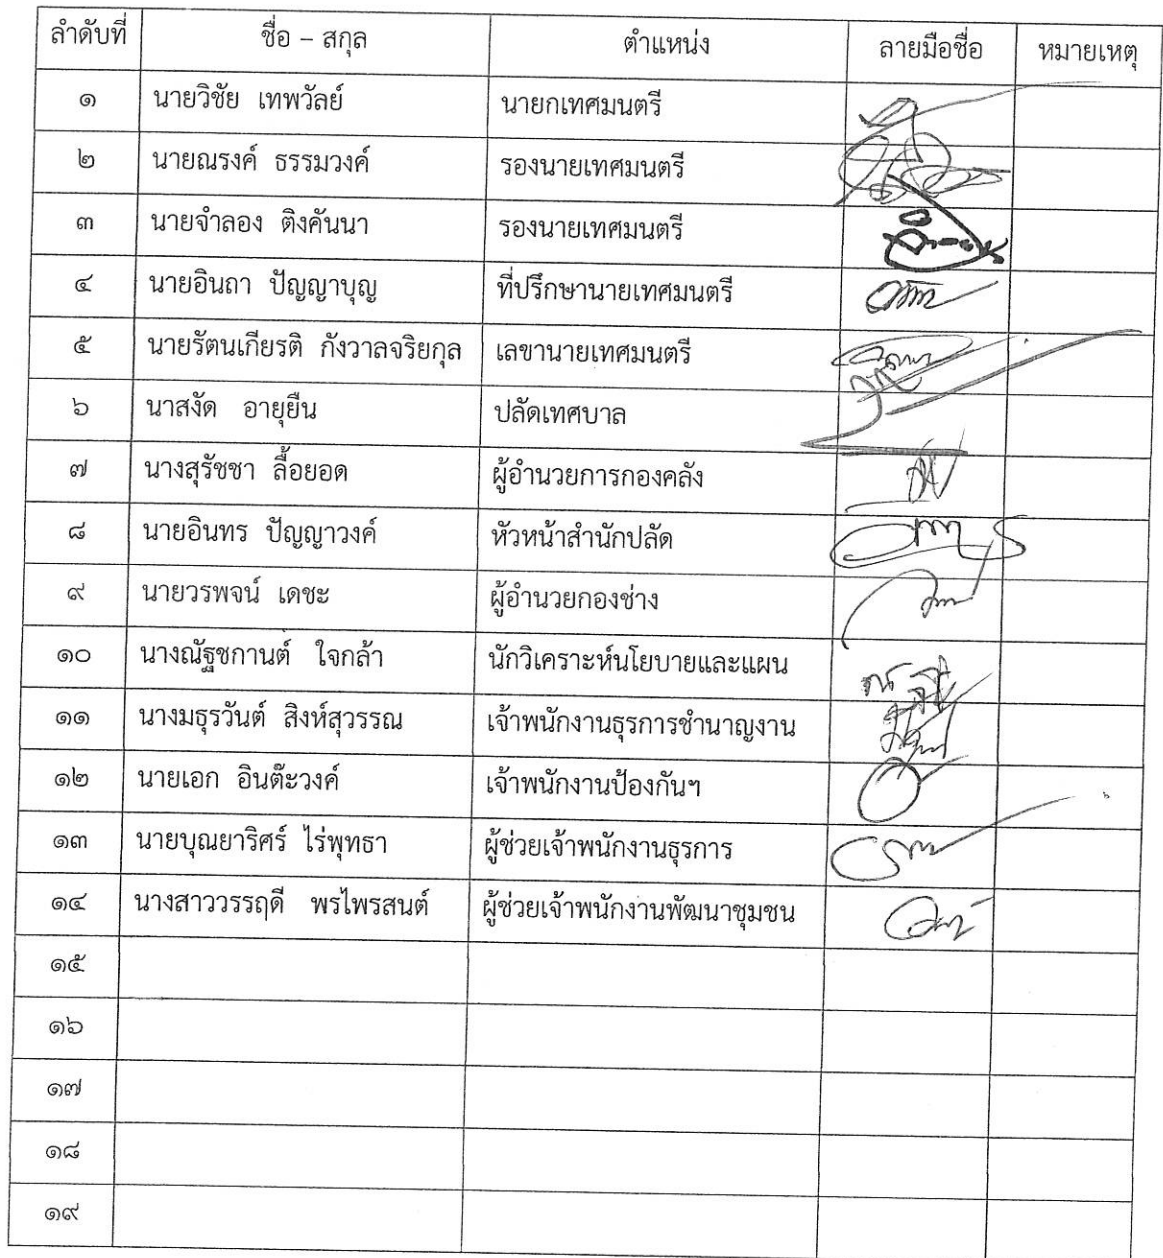 ลำดับที่ ชื่อ – สกุล ตำแหน่ง ลายมือชื่อ หมายเหตุ
๑ นายวิชัย เทพวัลย์ นายกเทศมนตรี
๒ นายณรงค์ ธรรมวงค์ รองนายเทศมนตรี
๓ นายจำลอง ติงคันนา รองนายเทศมนตรี
๔ นายอินถา ปัญญาบุญ ที่ปรึกษานายเทศมนตรี
๕ นายรัตนเกียรติ กังวาลจริยกุล เลขานายเทศมนตรี
๖ นาสงัด อายุยืน ปลัดเทศบาล
๗ นางสุรัชชา ลื้อยอด ผู้อำนวยการกองคลัง
๘ นายอินทร ปัญญาวงค์ หัวหน้าสำนักปลัด
๙ นายวรพจน์ เดชะ ผู้อำนวยกองช่าง
๑๐ นางณัฐชกานต์ ใจกล้า นักวิเคราะห์นโยบายและแผน
๑๑ นางมธุรวันต์ สิงห์สุวรรณ เจ้าพนักงานธุรการชำนาญงาน
๑๒ นายเอก อินต๊ะวงค์ เจ้าพนักงานป้องกันฯ
๑๓ นายบุณยาริศร์ ไร่พุทธา ผู้ช่วยเจ้าพนักงานธุรการ
๑๔ นางสาววรรฤดี พรไพรสนต์ ผู้ช่วยเจ้าพนักงานพัฒนาชุมชน
๑๕
๑๖
๑๗
๑๘
๑๙